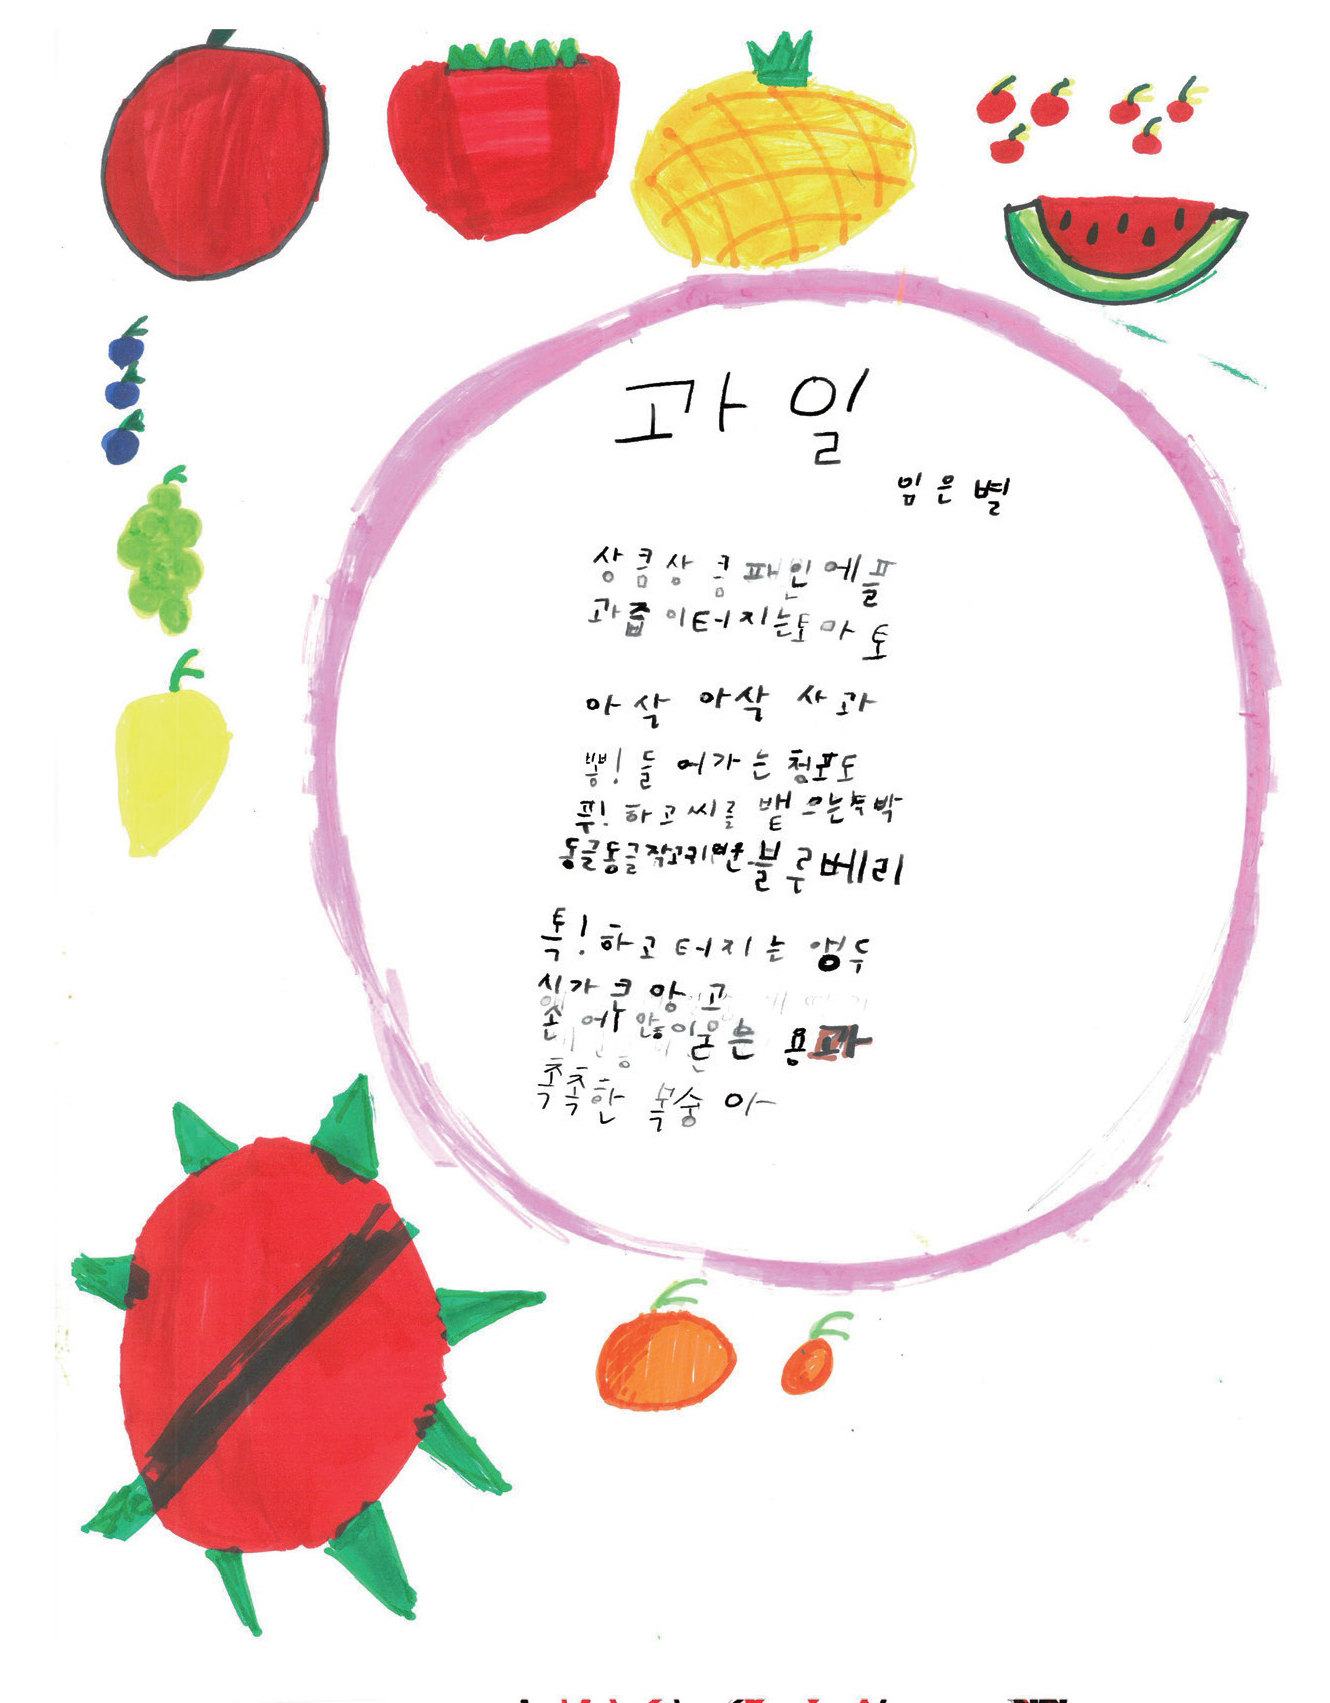 과일
임은별
상큼상큼 패인에플
과즙이 터지는 토마토
아삭 아삭 사과
뽕! 들어가는 청포도
푸! 하고 씨를 뱉으는 수박
동글동글 작고 귀여운 블루베리
톡! 하고 터지는 앵두
시가 크앙고
손에
용과
촉촉한 복숭아